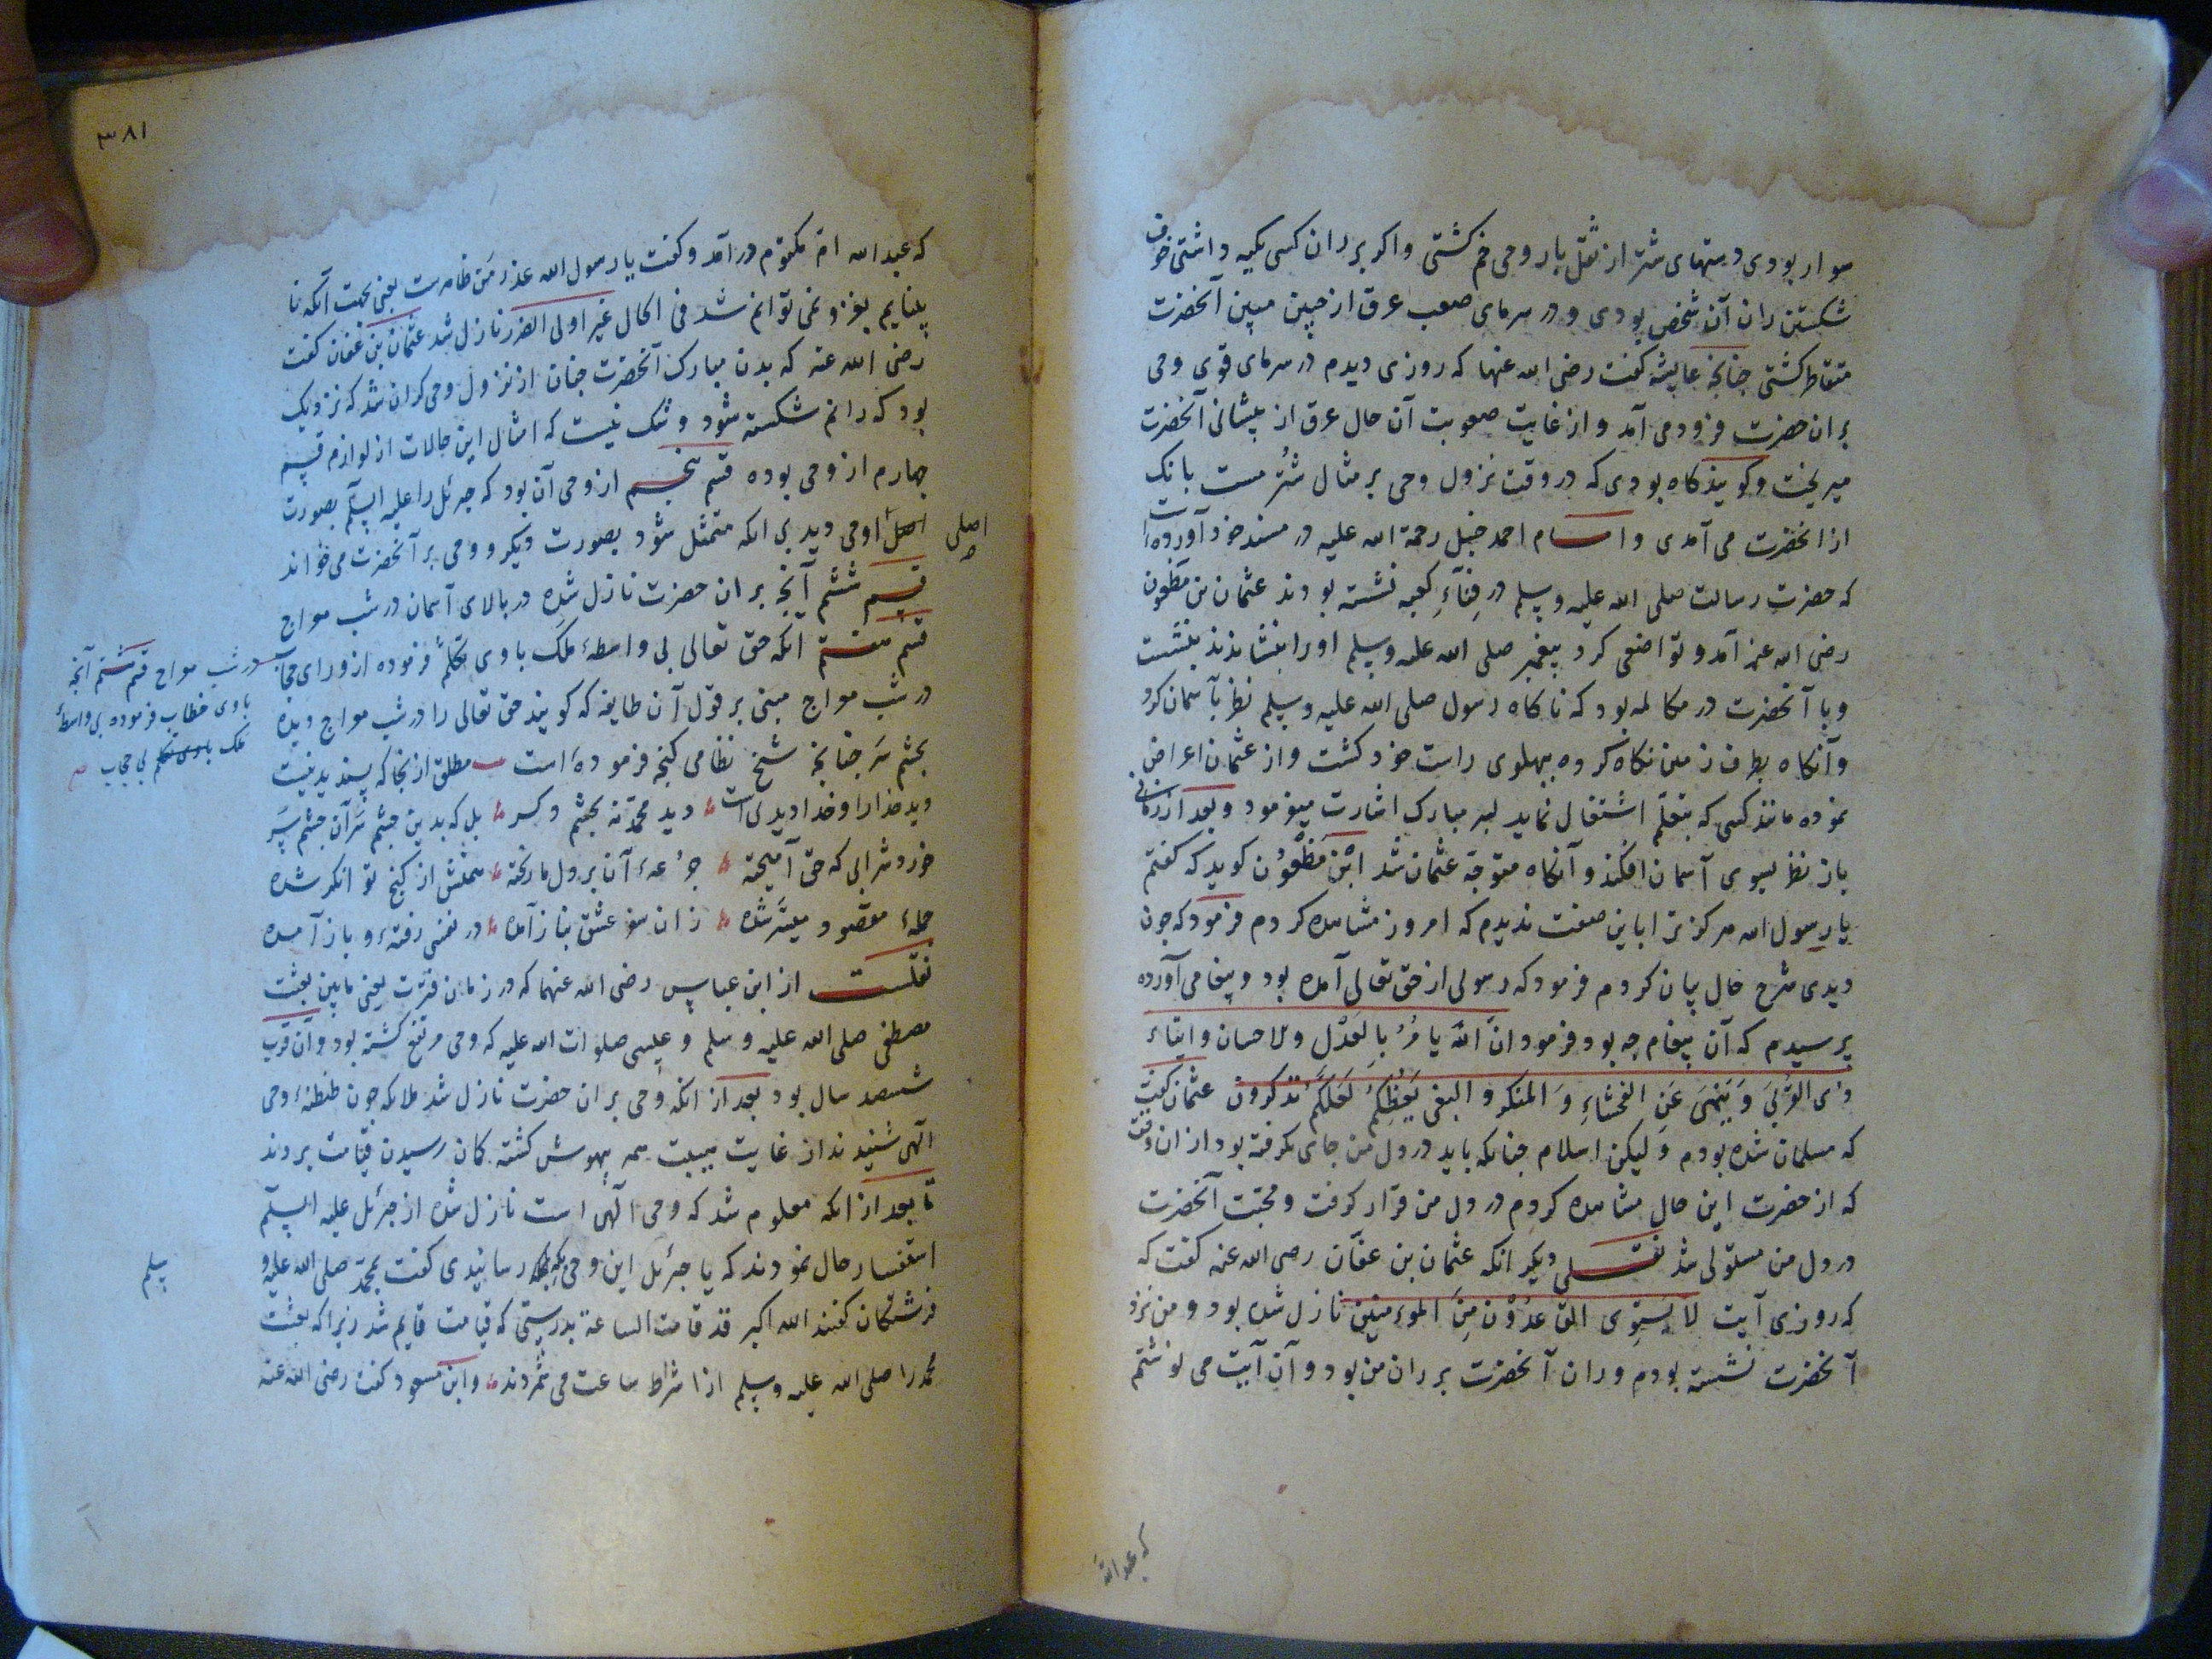 سوار بودی دستهای شتر از ثقل بار وحی خم کشتی واکر بر ران کسی تکیه داشتی خوف
شکستن ران آن شخص بودی و در سرمای صعب عرق از جبین مبین آنحضرت
متقاطر کشتی جنانجه عایشه کفت رضی الله عنها که روزی دیدم در سرمای قوی وحی
بران حضرت فرود می آمد و از غایت صعوبت آن حال عرق از پیشانی آنحضرت
میریخت و کویند کاه بودی که در وقت نزول وحی بر مثال شتر مست بانک
از انحضرت می آمدی و امام احمد حنبل رحمة الله علیه در مسند خود آورده است
که حضرت رسالت صلی الله علیه وسلم در فِنآءِ کعبه نشسته بودند عثمان بن مظعون
رضی الله عنه آمد و تواضعی کرد پیغمبر صلی الله علیه وسلم اورا بنشاندند بنشست
و با آنحضرت در مکالمه بود که ناکاه رسول صلی الله علیه وسلم نظر بآسمان کرد
و آنکاه بطرف زمین نکاه کرده بپهلوی راست خود کشت و از عثمان اعراض
نموده مانند کسی که بتعلّم اشتغال نماید بسر مبارک اشارت میفرمود و بعد از زمانی
باز نظر بسوی آسمان افکند و آنکاه متوجّه عثمان شد ابْن مَظْعوُن کوید که کفتم
یا رسول الله هرکز ترا باین صفت ندیدم که امروز مشاهده کردم فرمود که جون
دیدی شرح حال بیان کردم فرمود که رسولی از حق تعالی آمده بود و پیغامی آورده
پرسیدم که آن پیغام چه بود فرمود انّ اللّه یأمُرُ بِالعَدْل والاحسان وایتاء
ذی القُربی وَیَنهی عَنِ الفَحشاءِ وَالمنکر والبغی یَعِظُکمُ لَعَلَّکُم تذکّرون عثمان کفت
که مسلمان شده بودم وَلیکن اسلام جنانکه باید در دل من جای نکرفته بود ازان وقت
که از حضرت این حال مشاهده کردم در دل من قرار کرفت و محبّت آنحضرت
در دل من مستولی شد نقلی دیکر انکه عثمان بن عفّان رضی الله عنه کفت که
که روزی آیت لا یَستوی القاعدُوْن مِنَ المؤمنین نازل شده بود و من نزد
آنحضرت نشسته بودم و ران آنحضرت بر ران من بود و آن آیت می نوشتم
که عبد الله
٣٨١
که عبد الله ام مکتوم در آمد و کفت یا رسول الله عذر من ظاهرست یعنی بجهت آنکه نا
بینایم بغزو نمی توانم شد فی الحال غیر اولی الضرر نازل شد عثمان بن عفان کفت
رضی الله عنه که بدن مبارک آنحضرت جنان از نزول وحی کران شد که نزدیک
بود که رانم شکسته شود و شک نیست که امثال این حالات از لوازم قسم
جهارم از وحی بوده قسم پنجم از وحی آن بود که جبرئل را علیه السلم بصورت
اصل او می دید بی انکه متمثل شود بصورت دیکر و وحی بر آنحضرت می خواند
اصلی
قسم ششم آنجه بران حضرت نازل شده در بالای آسمان در شب معراج
قسم هفتم انکه حق تعالی بی واسطهٔ ملک باوی تکلّم فرموده از ورای حجاب
در شب معراج قسم هشتم آنجه
باوی خطاب فرموده بی واسطهٔ
ملک باوی تکلم بی حجاب
در شب معراج مبنی بر قول آن طایفه که کویند حق تعالی را در شب معراج دیده
بجشم سَر جنانجه شیخ نظامی کنجه فرموده است مطلق ازانجا که پسندیدنیست
دید خدا را و خدا دیدی است دید محمّد نه بجشم دکسر بل که بدین جشم سَر آن جشم سِر
خورد شرابی که حق آمیخته جرعهٔ آن بر دل ما ریخته همتش از کنج توانکر شده
جملهٔ مقصود میسّر شده زان سفر عشق بناز آمده در نفسی رفته و باز آمده
نقلست از ابن عباس رضی الله عنهما که در زمان فترت یعنی مابین بعثت
مصطفی صلی الله علیه وسلم و عیسی صلوات الله علیه که وحی مرتفع کشته بود و آن قرب
ششصد سال بود بعد از انکه وحی بران حضرت نازل شد ملائکه جون طنطنهٔ وحی
الهی شنیدند از غایت هیبت همه بیهوش کشته کمان رسیدن قیامت بردند
تا بعد از انکه معلوم شد که وحی الهی است نازل شده از جبرئل علیه السلم
استفسار حال نمودند که یا جبرئل این وحی بکه رسانیدی کفت بمحمّد صلی الله علیه و
سلم
فرشتکان کفتند الله اکبر قد قامت الساعة بدرستی که قیامت قایم شد زیرا که بعثت
محمد را صلی الله علیه وسلم از اشراط ساعت می شمردند و ابن مسعود کفت رضی الله عنه